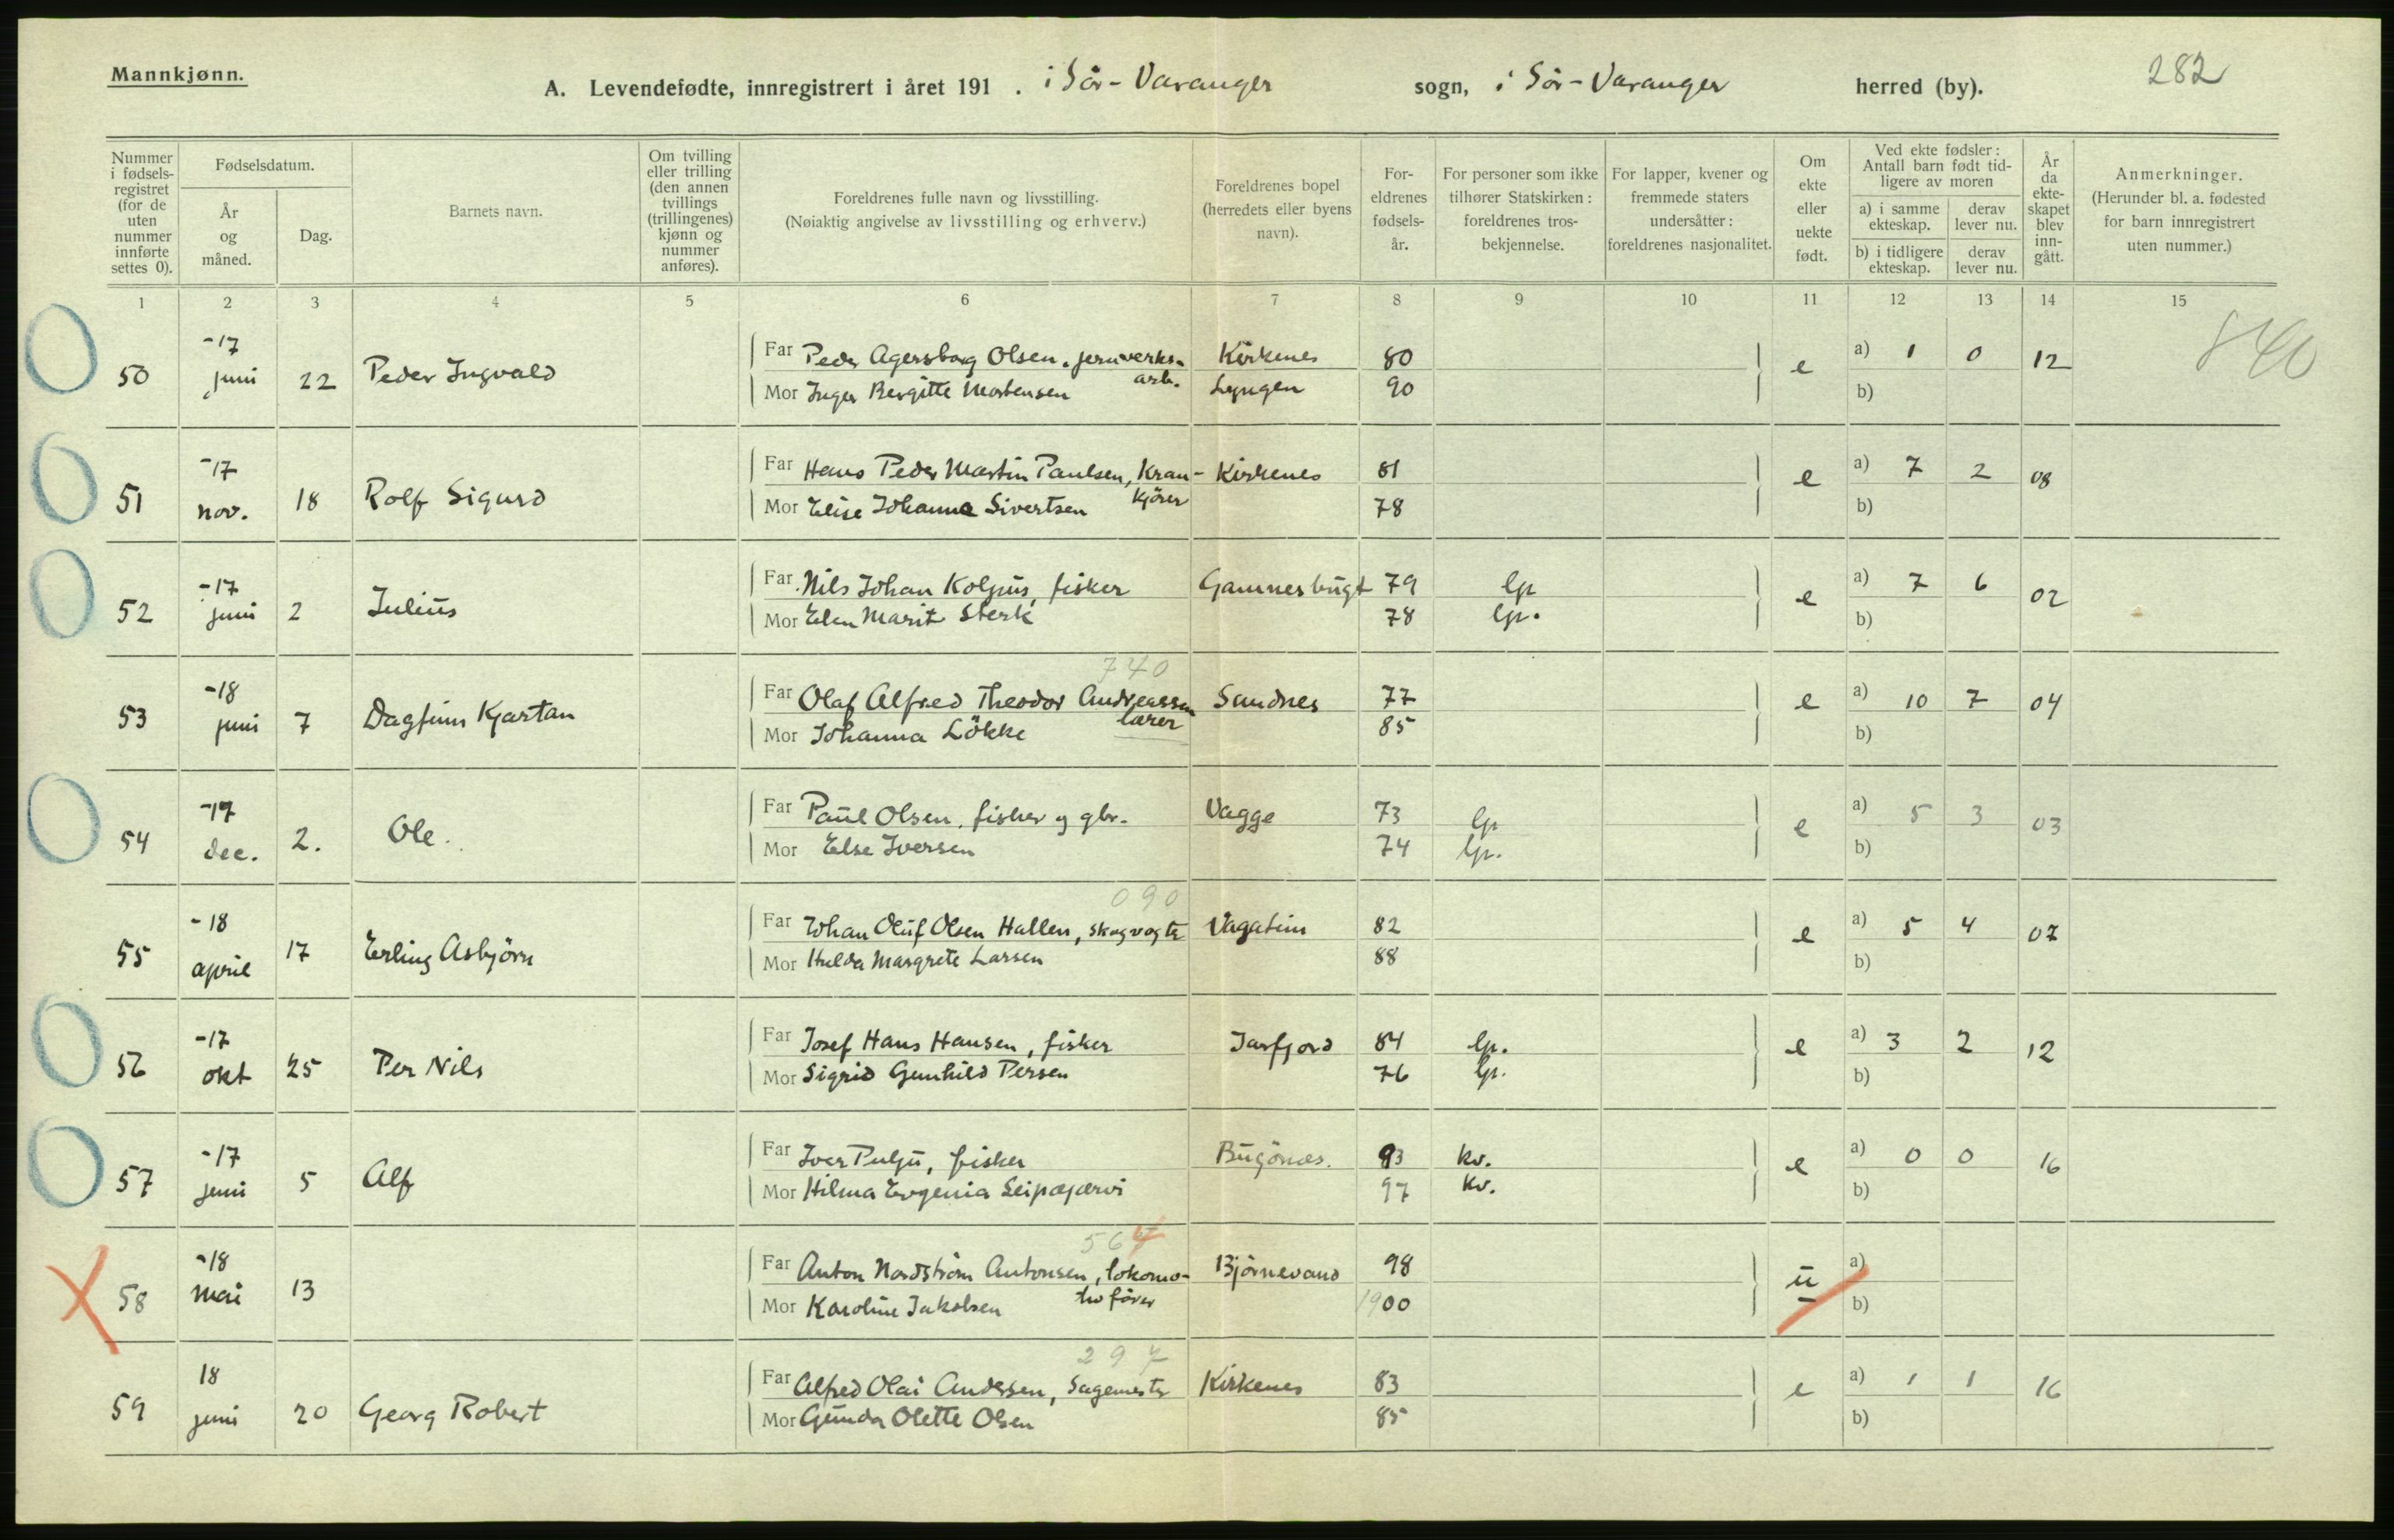 Mannkjønn.
A. Levendefødte, innregistrert i året 191 . i Sör-Varanger sogn, i Sör-Varanger herred (by). 282
Nummer i fødsels-registret (for de uten nummer innførte settes 0).
Fødselsdatum.
År og måned.
Dag.
Barnets navn.
Om tvilling eller trilling (den annen tvillings (trillingenes) kjønn og nummer anføres).
Foreldrenes fulle navn og livsstilling.
(Nøiaktig angivelse av livsstilling og erhverv.)
Foreldrenes bopel (herredets eller byens navn).
For-eldrenes fødsels-år.
For personer som ikke tilhører Statskirken: foreldrenes tros-bekjennelse.
For lapper, kvener og fremmede staters undersåtter: foreldrenes nasjonalitet.
Om ekte eller uekte født.
Ved ekte fødsler: Antall barn født tid-ligere av moren
a) i samme ekteskap.
derav lever nu.
b) i tidligere ekteskap.
derav lever nu.
År da ekte-skapet blev inn-gått.
Anmerkninger.
(Herunder bl. a. fødested for barn innregistrert uten nummer.)
1 2 3 4 5 6 7 8 9 10 11 12 13 14 15
840
50 -17 juni 22 Peder Ingvald
Far Peder Agersborg Olsen, jernverks-arb. Kirkenes 80 e a) 1 0 12
Mor Inger Bergitte Mortensen Lyngen 90 b)
51 -17 nov. 18 Rolf Sigurd
Far Hans Peder Martin Paulsen, Kran-kjörer Kirkenes 81 e a) 7 2 08
Mor Elise Johanne Sivertsen 78 b)
52 -17 juni 2 Julius
Far Nils Johan Kolpus, fisker Gamnesbugt 79 lp e a) 7 6 02
Mor Elen Marit Sterk 78 lp. b)
740
53 -18 juni 7 Dagfinn Kjartan
Far Olaf Alfred Theodor Andreassen lærer Sandnes 77 e a) 10 7 04
Mor Johanna Lökke 85 b)
54 -17 dec. 2. Ole.
Far Paul Olsen, fisker og gbr. Vagge 73 lp e a) 5 3 03
Mor Else Iversen 74 lp. b)
090
55 -18 april 17 Erling Asbjörn
Far Johan Oluf Olsen Hallen, skogvogter Vagatim 82 e a) 5 4 07
Mor Hulda Margrete Larsen 88 b)
56 -17 okt 25 Per Nils
Far Josef Hans Hansen, fisker Jarfjord 84 lp. e a) 3 2 12
Mor Sigrid Gunhild Persen 76 lp. b)
57 -17 juni 5 Alf
Far Iver Pulju, fisker Bugönes. 93 kv. e a) 0 0 16
Mor Hilma Evgenia Seipæjærvi 97 kv. b)
564
58 -18 mai 13
Far Anton Nordström Antonsen, lokomo-tivförer Björnevand 98 u a)
Mor Karoline Jakobsen 1900 b)
297
59 18 juni 20 Georg Robert
Far Alfred Olai Andersen, Sagemester Kirkenes 83 e a) 1 1 16
Mor Gunda Olette Olsen 85 b)